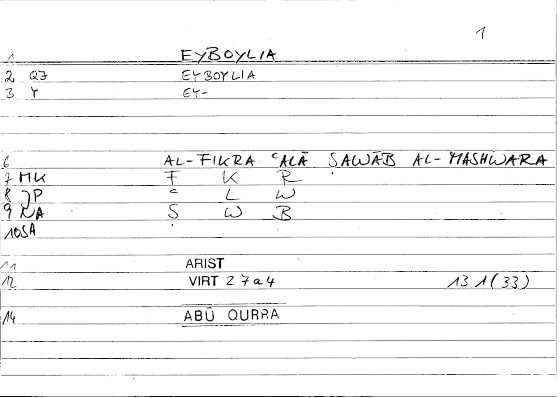 1
1 EYBOYLIA
2 QJ EYBOYLIA
3 Y EY-
6 AL-FIKRA ʿALĀ ṢAWĀB AL-MASHWARA
7 MK F K R
8 JP ʿ L W
9 NA S W B
10 SA
11 ARIST
12 VIRT 2 7a4 13.1(33)
14 ABŪ QURRA